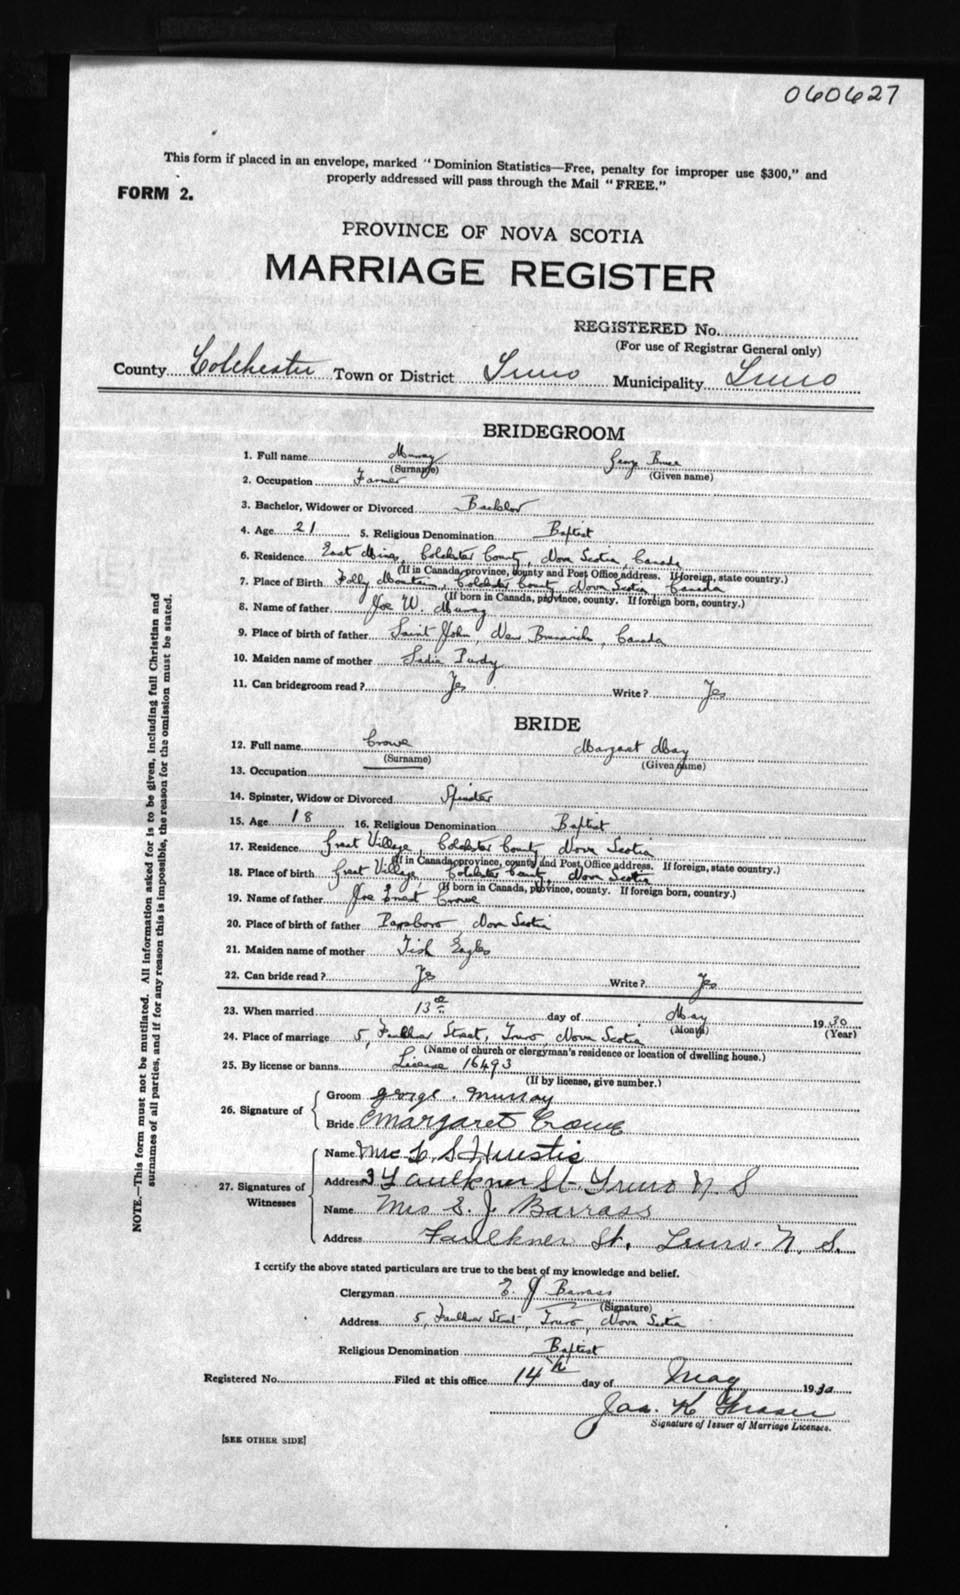 060627
This form if placed in an envelope, marked "Dominion Statistics—Free, penalty for improper use $300," and
properly addressed will pass through the Mail "FREE."
FORM 2.
PROVINCE OF NOVA SCOTIA
MARRIAGE REGISTER
REGISTERED No.
(For use of Registrar General only)
County Colchester Town or District Truro Municipality Truro
BRIDEGROOM
1. Full name Murray George Bruce
(Surname) (Given name)
2. Occupation Farmer
3. Bachelor, Widower or Divorced Bachelor
4. Age 21 5. Religious Denomination Baptist
6. Residence East Mines, Colchester County, Nova Scotia, Canada
(If in Canada, province, county and Post Office address. If foreign, state country.)
7. Place of Birth Folly Mountain, Colchester County Nova Scotia Canada
(If born in Canada, province, county. If foreign born, country.)
8. Name of father Joe W. Murray
9. Place of birth of father Saint John, New Brunswick, Canada
10. Maiden name of mother Sadie Purdy
11. Can bridegroom read? Yes Write? Yes
BRIDE
12. Full name Crowe Margaret May
(Surname) (Given name)
13. Occupation
14. Spinster, Widow or Divorced Spinster
15. Age 18 16. Religious Denomination Baptist
17. Residence Great Village, Colchester County, Nova Scotia
(If in Canada, province, county and Post Office address. If foreign, state country.)
18. Place of birth Great Village, Colchester County, Nova Scotia
(If born in Canada, province, county. If foreign born, country.)
19. Name of father Joe Ernest Crowe
20. Place of birth of father Parrsboro Nova Scotia
21. Maiden name of mother Tish Eagles
22. Can bride read? Yes Write? Yes
23. When married 13th day of May 1930
(Month) (Year)
24. Place of marriage 5, Faulkner Street, Truro Nova Scotia
(Name of church or clergyman's residence or location of dwelling house.)
25. By license or banns License 16493
(If by license, give number.)
26. Signature of
Groom George. Murray
Bride Margaret Crowe
27. Signatures of Witnesses
Name Mrs S Huestis
Address 3 Faulkner St. Truro N. S
Name Mrs E. J. Barrass
Address Faulkner St. Truro. N. S.
I certify the above stated particulars are true to the best of my knowledge and belief.
Clergyman E. J. Barrass
(Signature)
Address 5, Faulkner Street, Truro, Nova Scotia
Religious Denomination Baptist
Registered No. Filed at this office 14th day of May 1930
Jas. K Fraser
Signature of Issuer of Marriage Licenses.
[SEE OTHER SIDE]
NOTE.—This form must not be mutilated. All information asked for is to be given, including full Christian and
surnames of all parties, and if for any reason this is impossible, the reason for the omission must be stated.